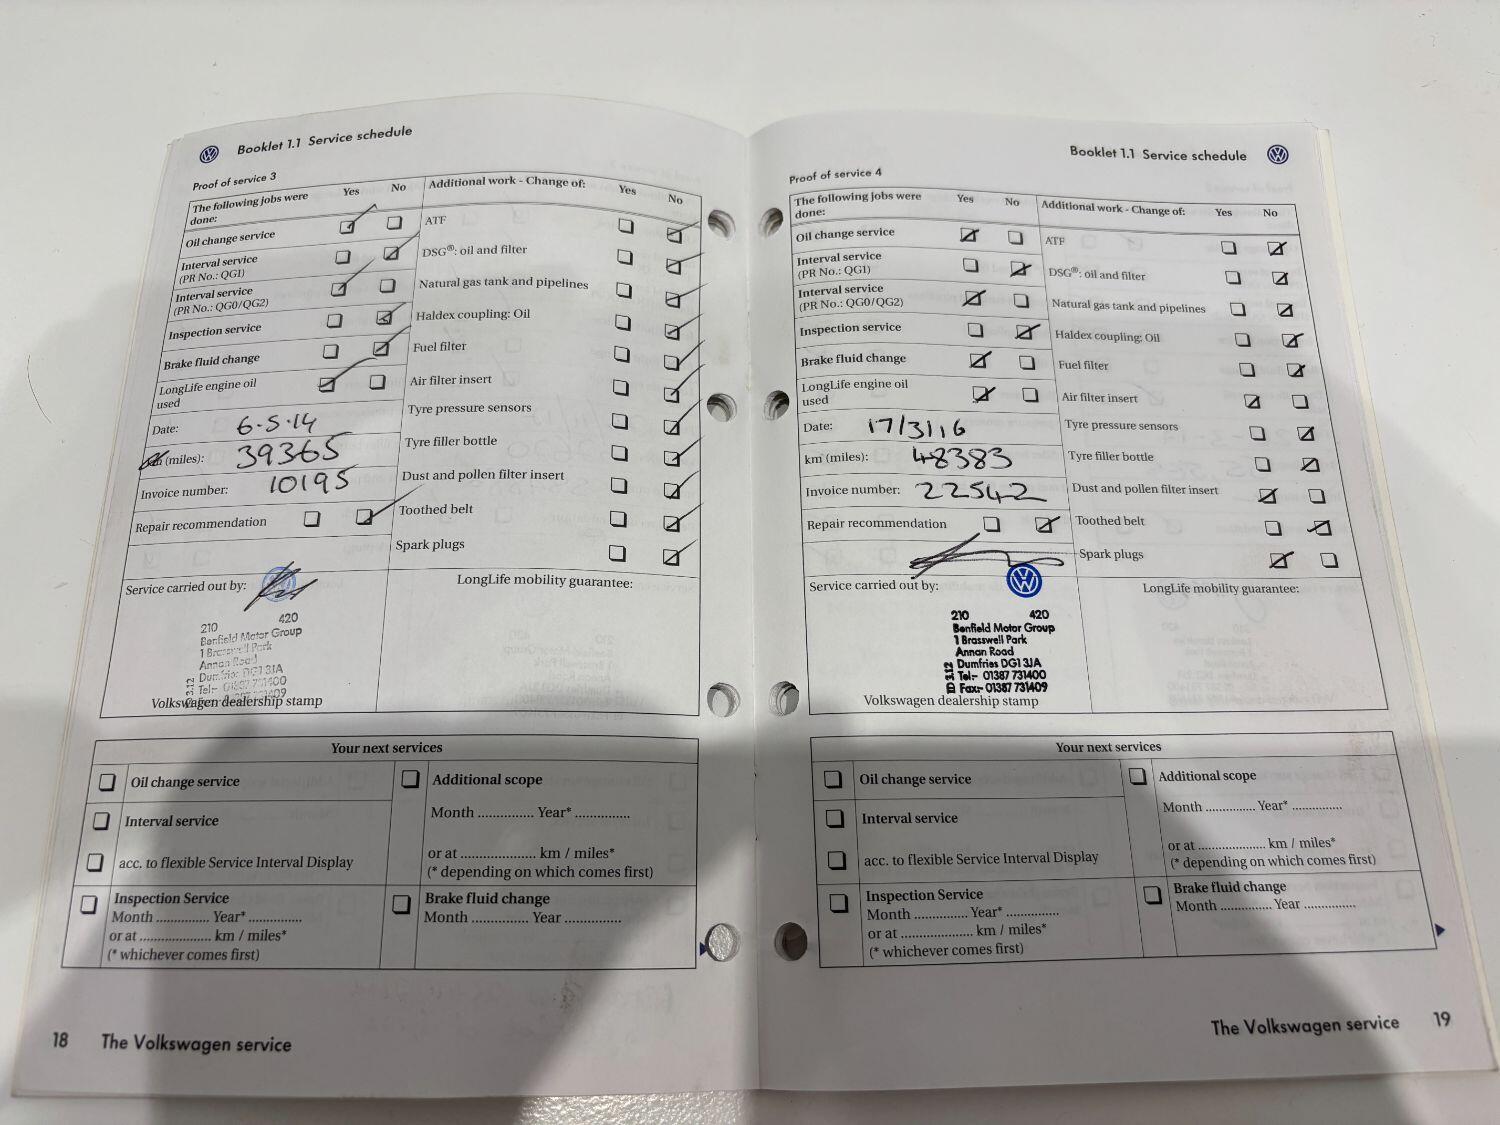 Booklet 1.1 Service schedule
Proof of service 3
The following jobs were done: Yes No
Oil change service
Interval service
(PR No.: QG1)
Interval service
(PR No.: QG0/QG2)
Inspection service
Brake fluid change
LongLife engine oil
used
Date: 6.5.14
km (miles): 39365
Invoice number: 10195
Repair recommendation
Additional work - Change of: Yes No
ATF
DSG®: oil and filter
Natural gas tank and pipelines
Haldex coupling: Oil
Fuel filter
Air filter insert
Tyre pressure sensors
Tyre filler bottle
Dust and pollen filter insert
Toothed belt
Spark plugs
Service carried out by:
210 420
Benfield Motor Group
1 Brasswell Park
Annan Road
Dumfries DG1 3JA
Tel:- 01387 731400
Volkswagen dealership stamp
LongLife mobility guarantee:
Your next services
Oil change service
Interval service
acc. to flexible Service Interval Display
Inspection Service
Month .............. Year* ..............
or at ..................... km / miles*
(* whichever comes first)
Additional scope
Month .............. Year* ..............
or at ..................... km / miles*
(* depending on which comes first)
Brake fluid change
Month .............. Year ..............
18 The Volkswagen service
Booklet 1.1 Service schedule
Proof of service 4
The following jobs were Yes No
done:
Oil change service
Interval service
(PR No.: QG1)
Interval service
(PR No.: QG0/QG2)
Inspection service
Brake fluid change
LongLife engine oil
used
Date: 17/3/16
km (miles): 48383
Invoice number: 22542
Repair recommendation
Additional work - Change of: Yes No
ATF
DSG®: oil and filter
Natural gas tank and pipelines
Haldex coupling: Oil
Fuel filter
Air filter insert
Tyre pressure sensors
Tyre filler bottle
Dust and pollen filter insert
Toothed belt
Spark plugs
Service carried out by:
210 420
Benfield Motor Group
1 Brasswell Park
Annan Road
Dumfries DG1 3JA
Tel:- 01387 731400
Fax:- 01387 731409
Volkswagen dealership stamp
LongLife mobility guarantee:
Your next services
Oil change service
Interval service
acc. to flexible Service Interval Display
Inspection Service
Month .............. Year* ..............
or at ..................... km / miles*
(* whichever comes first)
Additional scope
Month .............. Year* ..............
or at ..................... km / miles*
(* depending on which comes first)
Brake fluid change
Month .............. Year ..............
The Volkswagen service 19